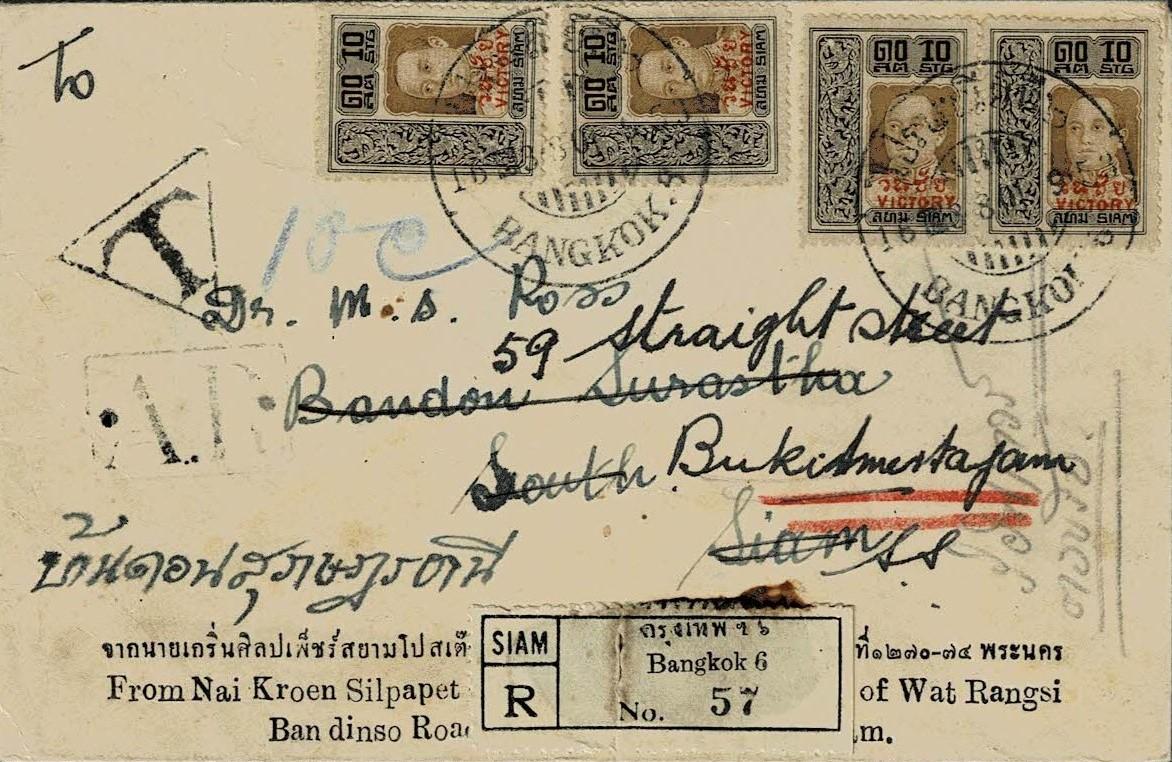 To
๑๐ 10
สต STG
วันชัย
VICTORY
สยาม SIAM
๑๐ 10
สต STG
วันชัย
VICTORY
สยาม SIAM
๑๐ 10
สต STG
วันชัย
VICTORY
สยาม SIAM
๑๐ 10
สต STG
วันชัย
VICTORY
สยาม SIAM
BANGKOK.
BANGKOK
T
10 c
Dr. M. S. Ross
59 Straight Street
Bandon Surastha
South Bukitmertajam
Siam SS
A.R
บ้านดอนสุราษฎรธานี
SIAM
R
กรุงเทพ ๖
Bangkok 6
No. 57
จากนายเกริ่นศิลปเพ็ชร์สยามโปสเต๊ ที่๑๒๗๐-๗๔ พระนคร
From Nai Kroen Silpapet of Wat Rangsi
Ban dinso Roa m.